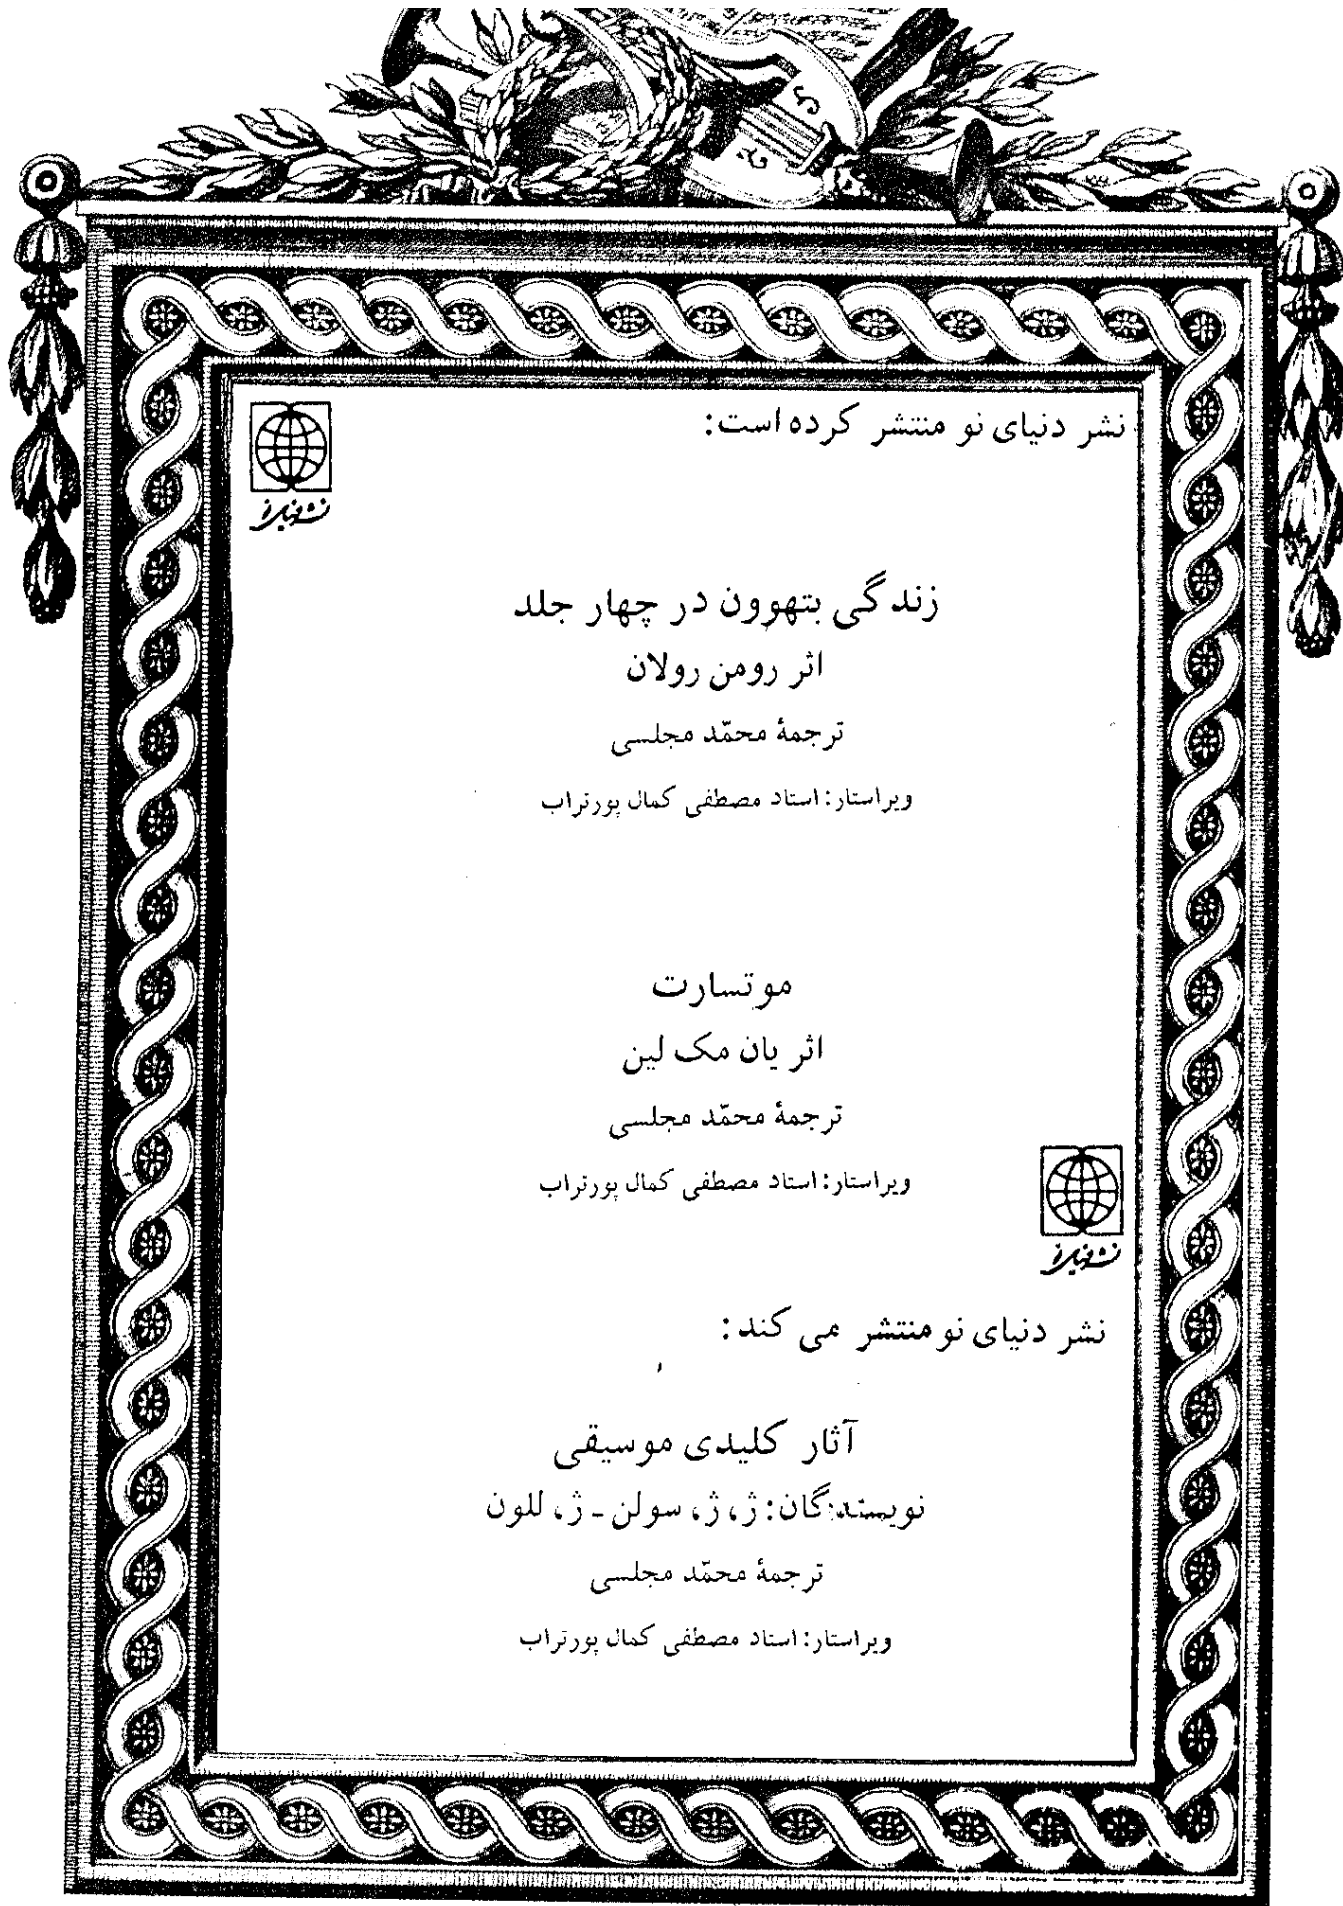 نشر دنیای نو منتشر کرده است:
نشر دنیای نو
زندگی بتهوون در چهار جلد
اثر رومن رولان
ترجمهٔ محمّد مجلسی
ویراستار: استاد مصطفی کمال پورتراب
موتسارت
اثر یان مک لین
ترجمهٔ محمّد مجلسی
ویراستار: استاد مصطفی کمال پورتراب
نشر دنیای نو
نشر دنیای نو منتشر می کند:
آثار کلیدی موسیقی
نویسندگان: ژ، ژ، سولن - ژ، للون
ترجمهٔ محمّد مجلسی
ویراستار: استاد مصطفی کمال پورتراب